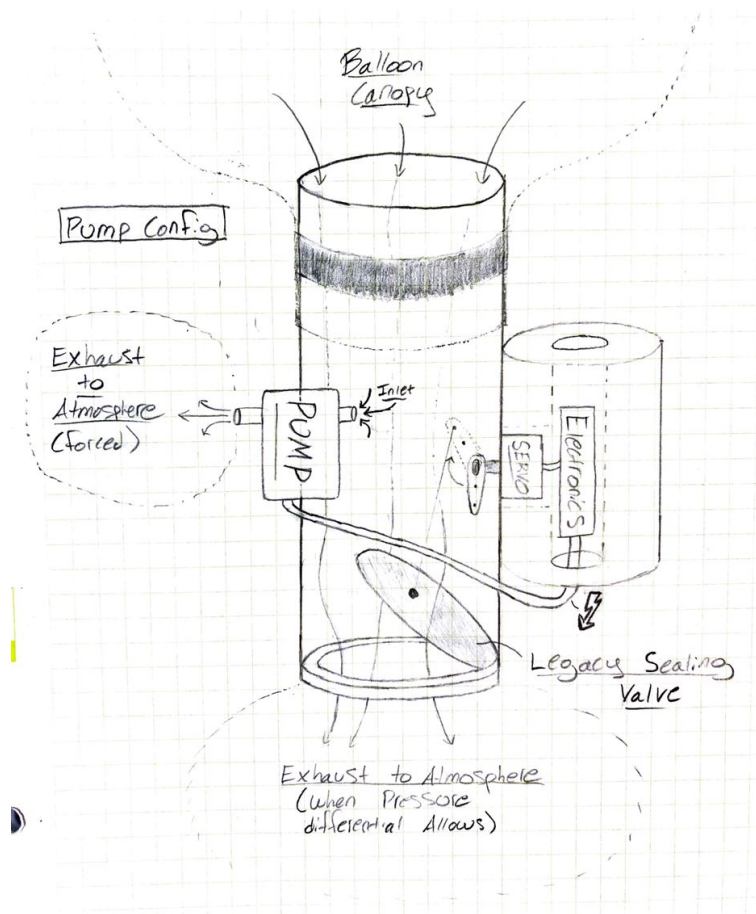 Balloon
Canopy
Pump Config
Exhaust
to
Atmosphere
(forced)
Inlet
PUMP
SERVO
Electronics
Legacy Sealing
Valve
Exhaust to Atmosphere
(when Pressure
differential Allows)